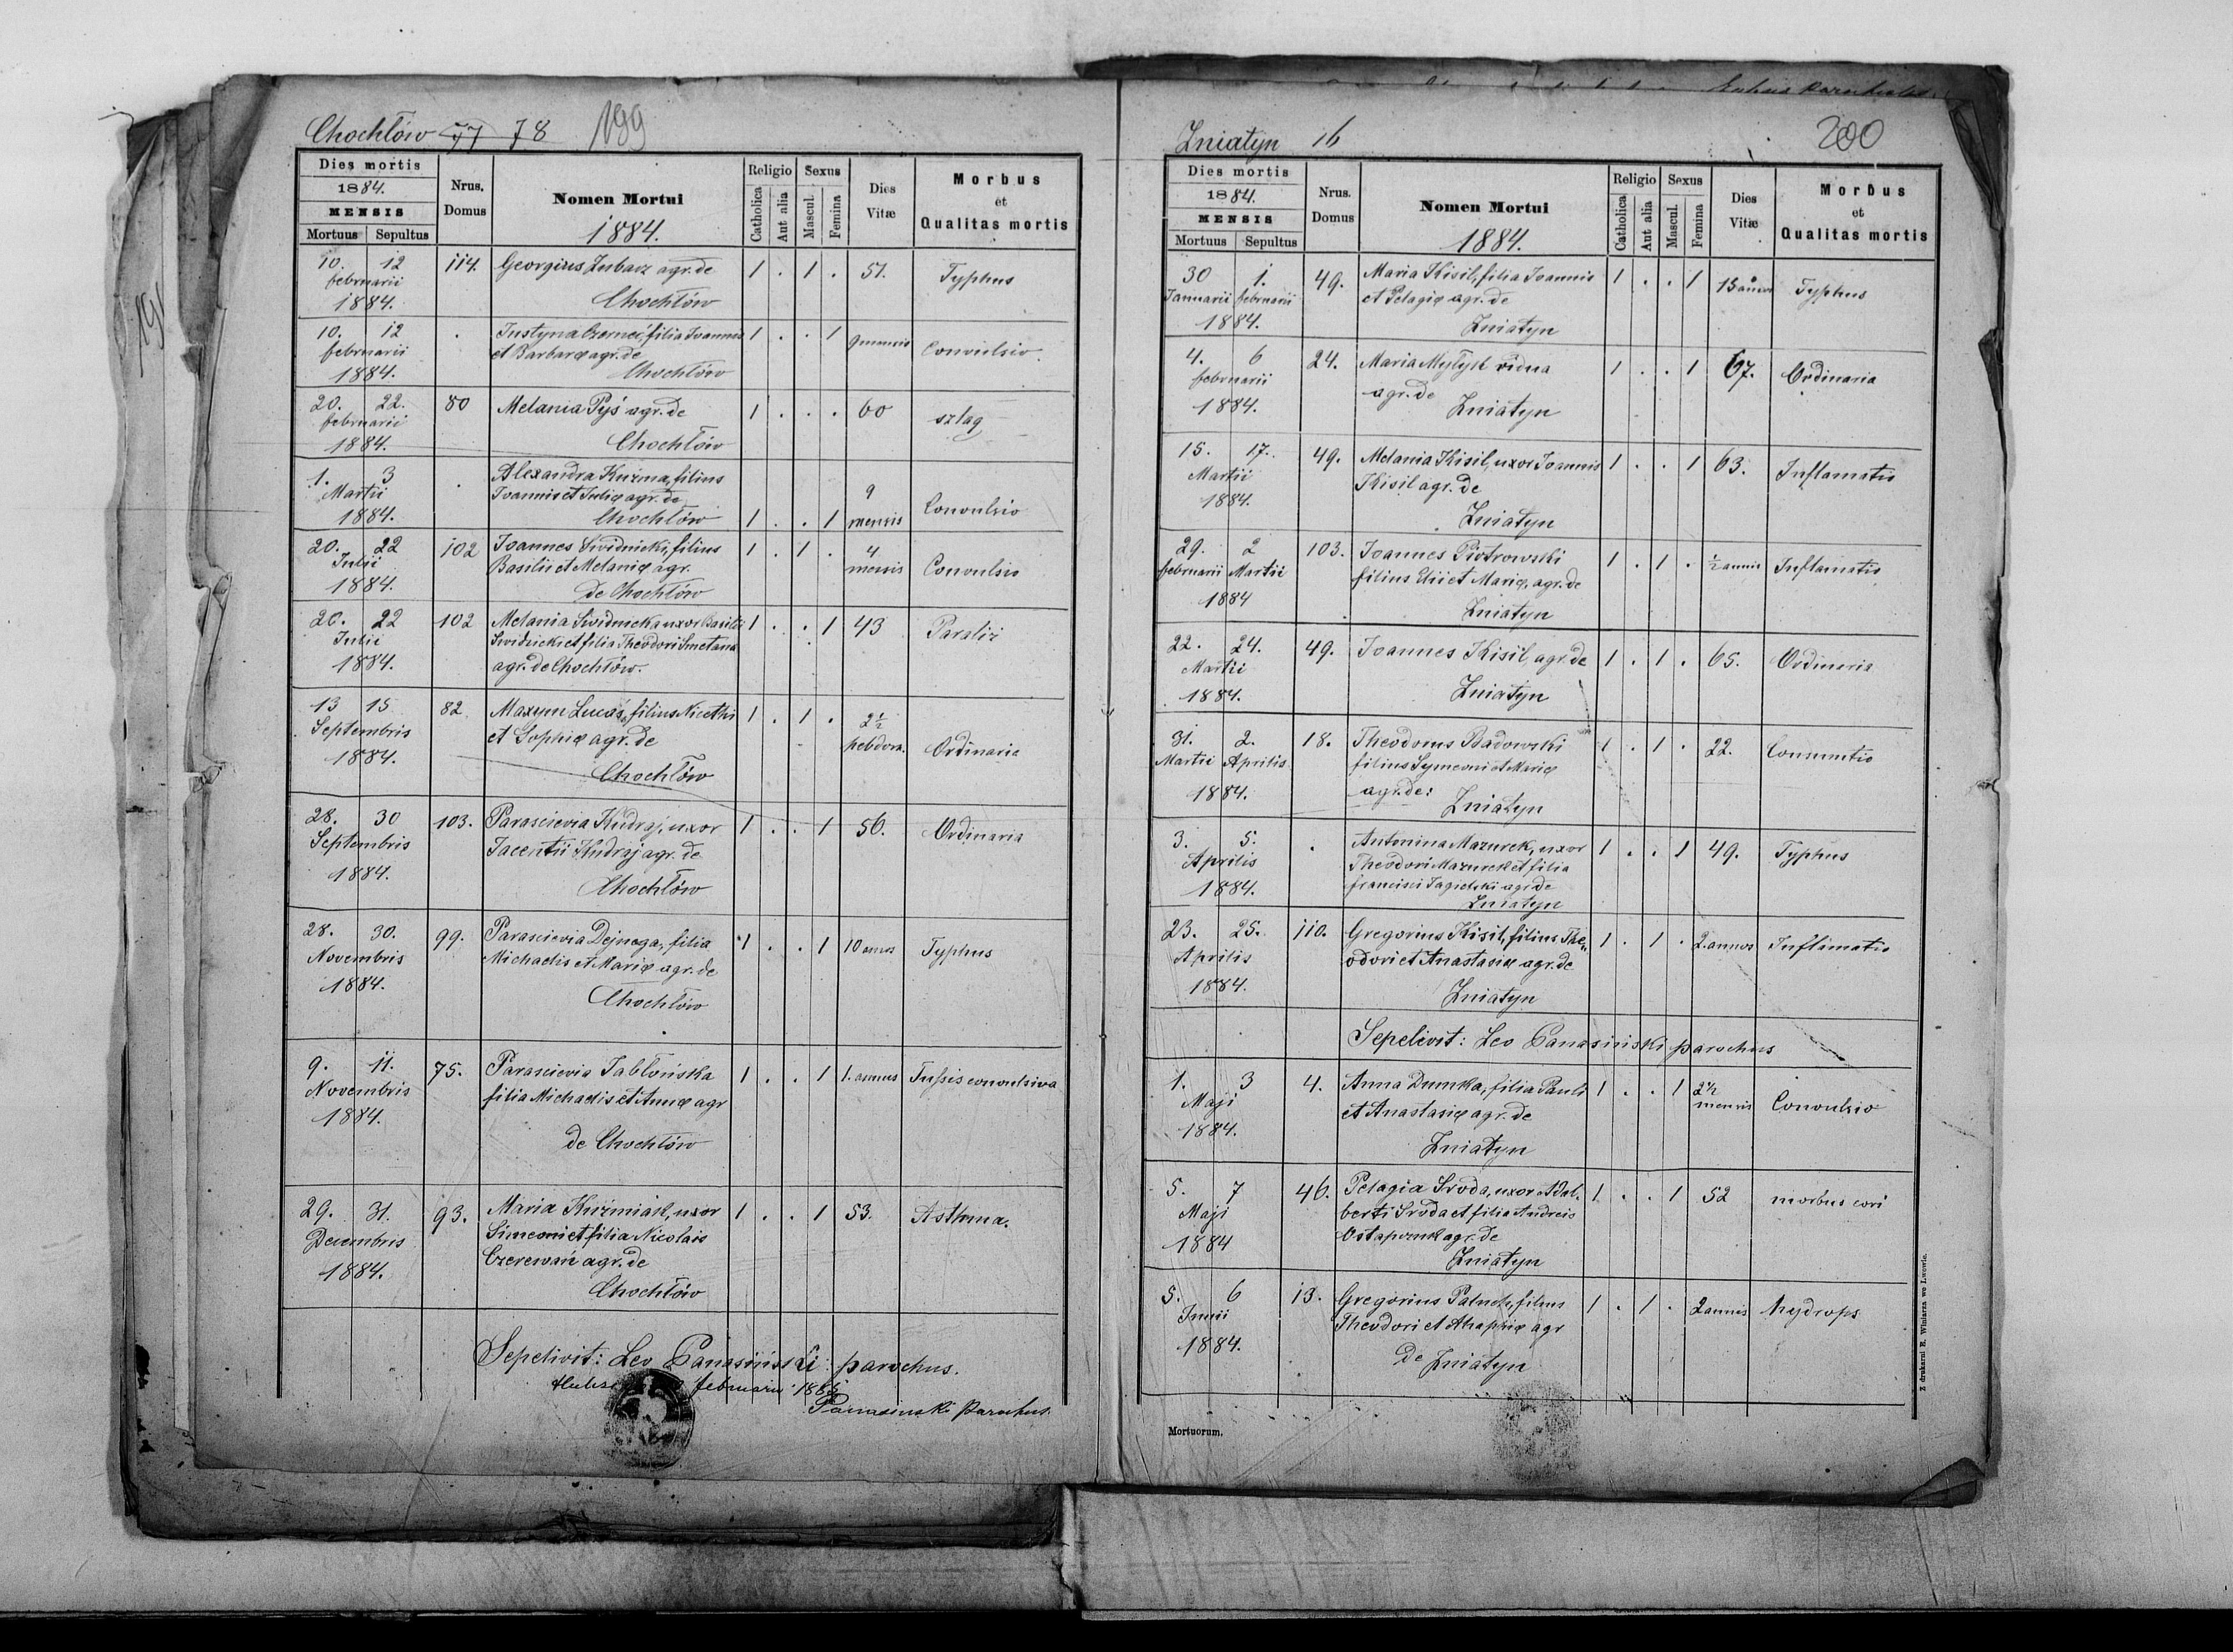 Chochłów 77 78 199
Dies mortis
1884.
MENSIS
Mortuus Sepultus
Nrus. Domus
Nomen Mortui
1884.
Religio
Catholica
Aut alia
Sexus
Mascul.
Femina
Dies Vitæ
Morbus
et
Qualitas mortis
10. 12 114. Georgius Zubacz agr. de 1 . 1 . 51. Typhus
februarii
1884. Chochłów
10. 12 . Justyna Czerneć, filia Joannis 1 . . 1 9 mensis Convulsio.
februarii et Barbaræ agr. de
1884. Chochłów
20. 22. 80 Melania Pyś agr. de 1 . . . 60 szlag
februarii
1884. Chochłów
1. 3 . Alexandra Kuźma, filius
Martii Joannis et Juliæ agr. de 9
1884. Chochłów 1 . . 1 mensis Convulsio
20. 22 102 Joannes Swidnicki, filius 1 . 1 . 4
Julii Basilii et Melaniæ agr. mensis Convulsio
1884. de Chochłów
20. 22 102 Melania Swidnicka uxor Basilii 1 . . 1 43 Paraliż
Julii Swidnicki et filia Theodori Smetana
1884. agr. de Chochłów.
13 15 82 Maxym Lucas, filius Nicethi 1 . 1 . 2½
Septembris et Sophiæ agr. de hebdom. Ordinaria
1884. Chochłów
28. 30 103. Parascievia Kudraj, uxor 1 . . 1 56. Ordinaria
Septembris Jacentii Kudraj agr. de
1884. Chochłów
28. 30. 99. Parascievia Dejnega, filia 1 . . 1 10 annos Typhus
Novembris Michaelis et Mariæ agr. de
1884. Chochłów
9. 11. 75. Parascievia Jabłońska 1 . . 1 1. annus Tussis convulsiva
Novembris filia Michaelis et Annæ agr
1884. de Chochłów
29. 31. 93. Maria Kuźmiak, uxor 1 . . 1 53. Asthma.
Decembris Simeoni et filia Nicolais
1884. Czerewań agr. de
Chochłów
Sepelivit: Leo Panasiński parochus.
februarii 1885
Panasinski Parochus.
Żniatyn 16 200
Dies mortis
1884.
MENSIS
Mortuus Sepultus
Nrus. Domus
Nomen Mortui
1884.
Religio
Catholica
Aut alia
Sexus
Mascul.
Femina
Dies Vitæ
Morbus
et
Qualitas mortis
30 1. 49. Maria Kisil, filia Joannis 1 . . 1 Typhus
Januarii februarii et Pelagiæ agr. de
1884. Żniatyn
4. 6 24. Maria Mytyk vidua 1 . . 1 67. Ordinaria
februarii agr. de
1884. Żniatyn
15. 17. 49. Melania Kisil, uxor Joannis 1 . . 1 63. Inflamatio
Martii Kisil agr. de
1884. Żniatyn
29. 2 103. Joannes Piotrowski 1 . 1 . ½ annis Inflamatio
februarii Martii filius Elii et Mariæ, agr. de
1884 Żniatyn
22. 24. 49. Joannes Kisil, agr. de 1 . 1 . 65. Ordineria
Martii
1884. Żniatyn
31. 2. 18. Theodorus Badowski 1 . 1 . 22. Consumtio
Martii Aprilis filius Symeoni et Mariæ
1884. agr. de: Żniatyn
3. 5. . Antonina Mazurek, uxor 1 . . 1 49. Typhus
Aprilis Theodori Mazurek et filia
1884. francisci Jagielski agr. de
Żniatyn
23. 25. 110. Gregorius Kisil, filius The„ 1 . 1 . 2. annos Inflimatio
Aprilis odori et Anastasiæ agr. de
1884. Żniatyn
Sepelivit: Leo Panasiński parochus
1. 3 4. Anna Dumka, filia Pauli 1 . . 1 2½
Maji et Anastasiæ agr. de mensis Convulsio
1884. Żniatyn
5. 7 46. Pelagia Sroda, uxor Adal. 1 . . 1 52 morbus cori
Maji berti Sroda et filia Andreis
1884 Ostapczuk agr. de
Żniatyn
5. 6 13. Gregorius Paluch, filius 1 . 1 . 2 annis hydrops
Junii Theodori et Ahaphiæ agr
1884. de Żniatyn
Mortuorum.
Z drukarni E. Winiarza we Lwowie.